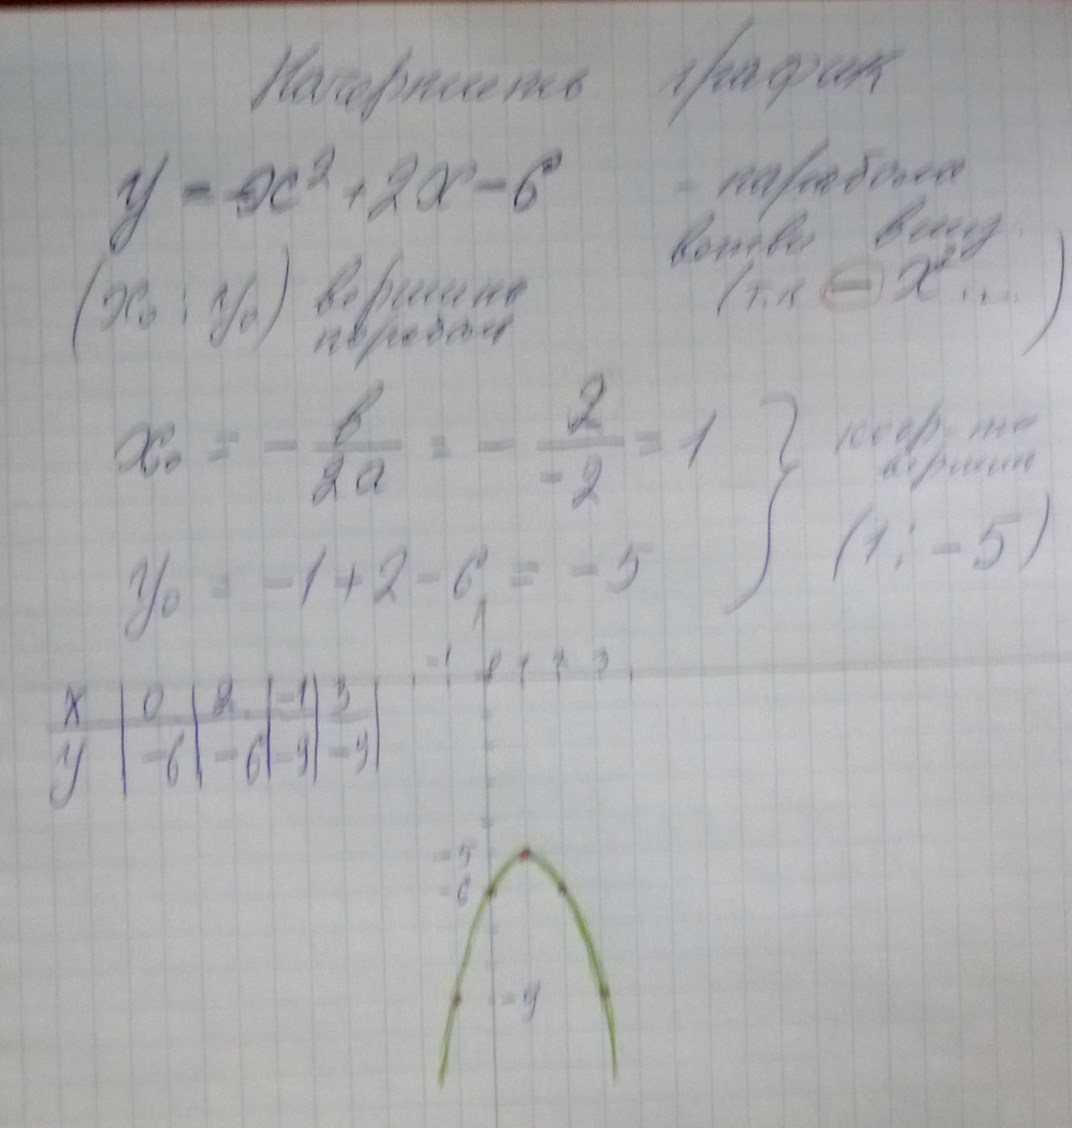 Начертить график
y = -x² + 2x - 6 - парабола
ветви вниз
(т.к - x² ...)
(x₀ ; y₀) вершина
параболы
x₀ = - b/2a = - 2/-2 = 1
y₀ = -1 + 2 - 6 = -5
коор-та
вершин
(1; -5)
-1 0 1 2 3
x | 0 | 2 | -1 | 3 |
y | -6 | -6 | -9 | -9 |
-5
-6
-9